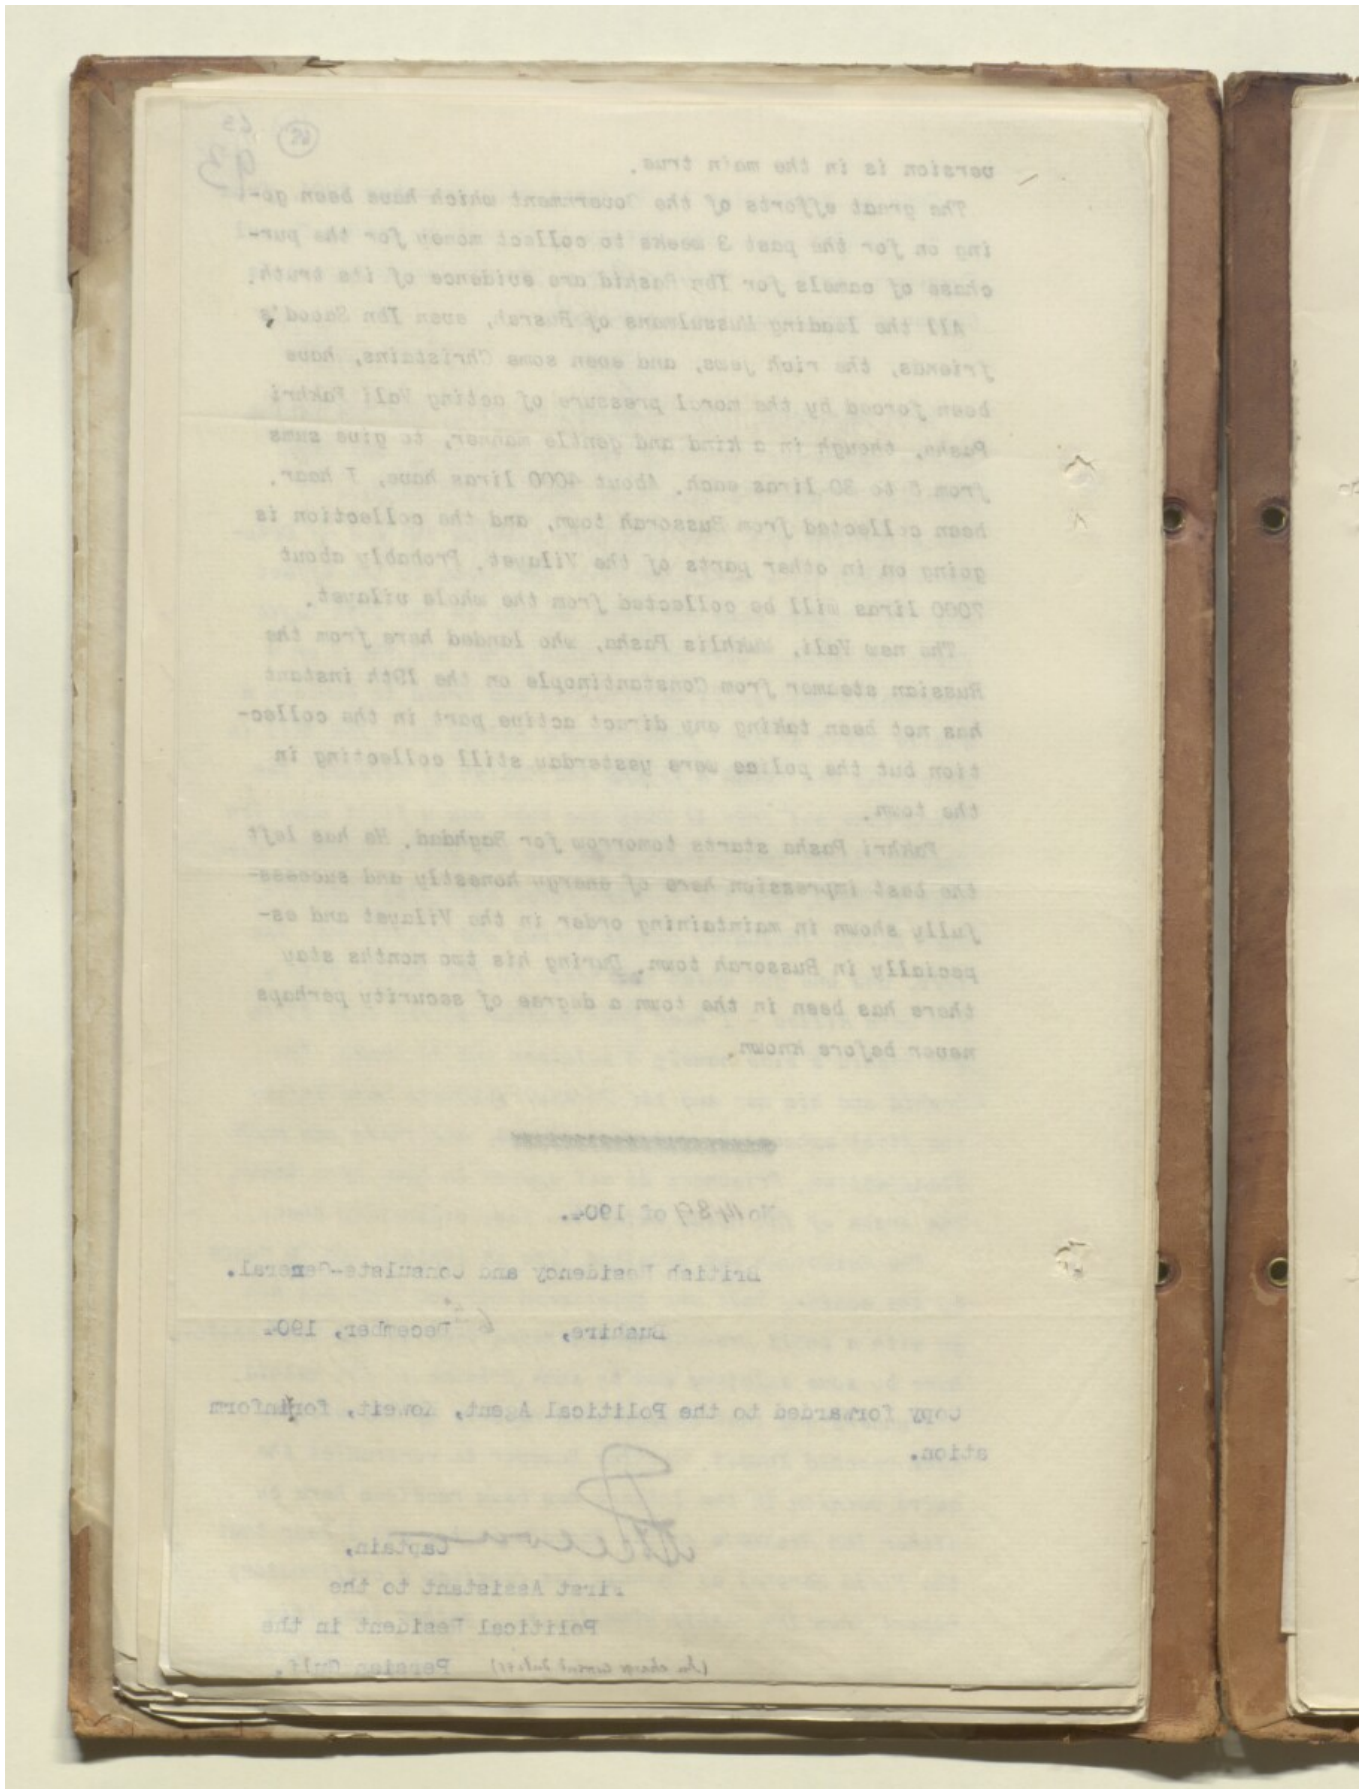 version is in the main true.
The great efforts of the Government which have been go-
ing on for the past 3 weeks to collect money for the pur-
chase of camels for Ibn Rashid are evidence of its truth.
All the leading Mussulmans of Busrah, even Ibn Saood's
friends, the rich jews, and even some Christains, have
been forced by the moral pressure of acting Vali Fakhri
Pasha, though in a kind and gentle manner, to give sums
from 5 to 30 liras each. About 4000 liras have, I hear,
been collected from Bussorah town, and the collection is
going on in other parts of the Vilayet. Probably about
7000 liras will be collected from the whole vilayet.
The new Vali, Mukhlis Pasha, who landed here from the
Russian steamer from Constantinople on the 19th instant
has not been taking any direct active part in the collec-
tion but the police were yesterday still collecting in
the town.
Fakhri Pasha starts tomorrow for Baghdad. He has left
the best impression here of energy honestly and success-
fully shown in maintaining order in the Vilayet and es-
pecially in Bussorah town. During his two months stay
there has been in the town a degree of security perhaps
never before known.
No 1489 of 1904.
British Residency and Consulate-General.
Bushire, 6 December, 1904
Copy forwarded to the Political Agent, Koweit, for inform
ation.
Captain,
First Assistant to the
Political Resident in the
(In charge current duties) Persian Gulf.